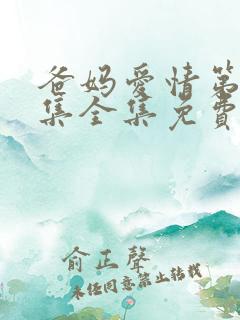 爸妈爱情第
集全集免費
俞正聲
未经同意禁止转载